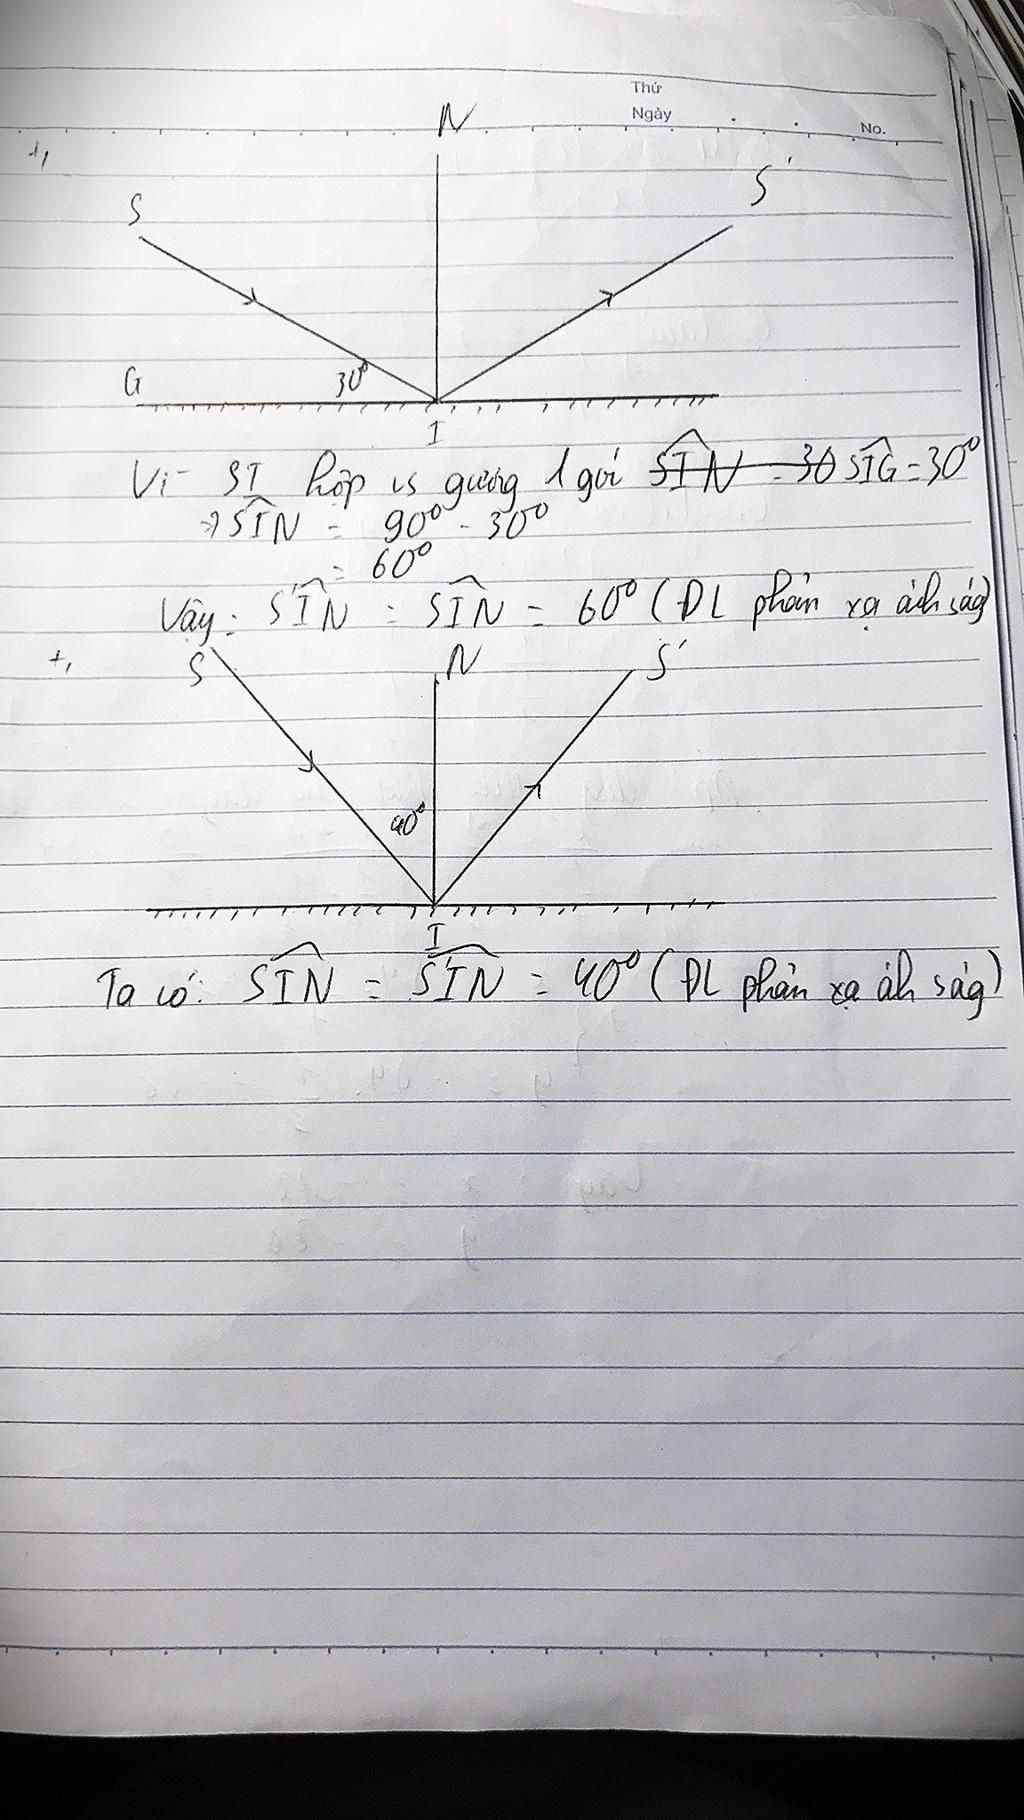 Thứ
Ngày
No.
+,
N
S
S'
30⁰
G
I
Vì SI hợp vs gương 1 góc SIN = 30 SIG = 30⁰
=> SIN = 90⁰ - 30⁰
= 60⁰
Vậy: S'IN = SIN = 60⁰ (ĐL phản xạ ánh ság)
+,
S
N
S'
40⁰
I
Ta có: SIN = S'IN = 40⁰ (ĐL phản xạ áh ság)